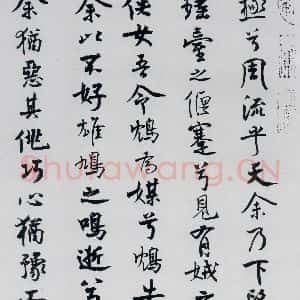 極兮周流乎天余乃下
瑤臺之偃蹇兮見有娀
佚女吾令鴆為媒兮鴆告
余以不好雄鳩之鳴逝兮
余猶惡其佻巧心猶豫而
Shufawang.CN